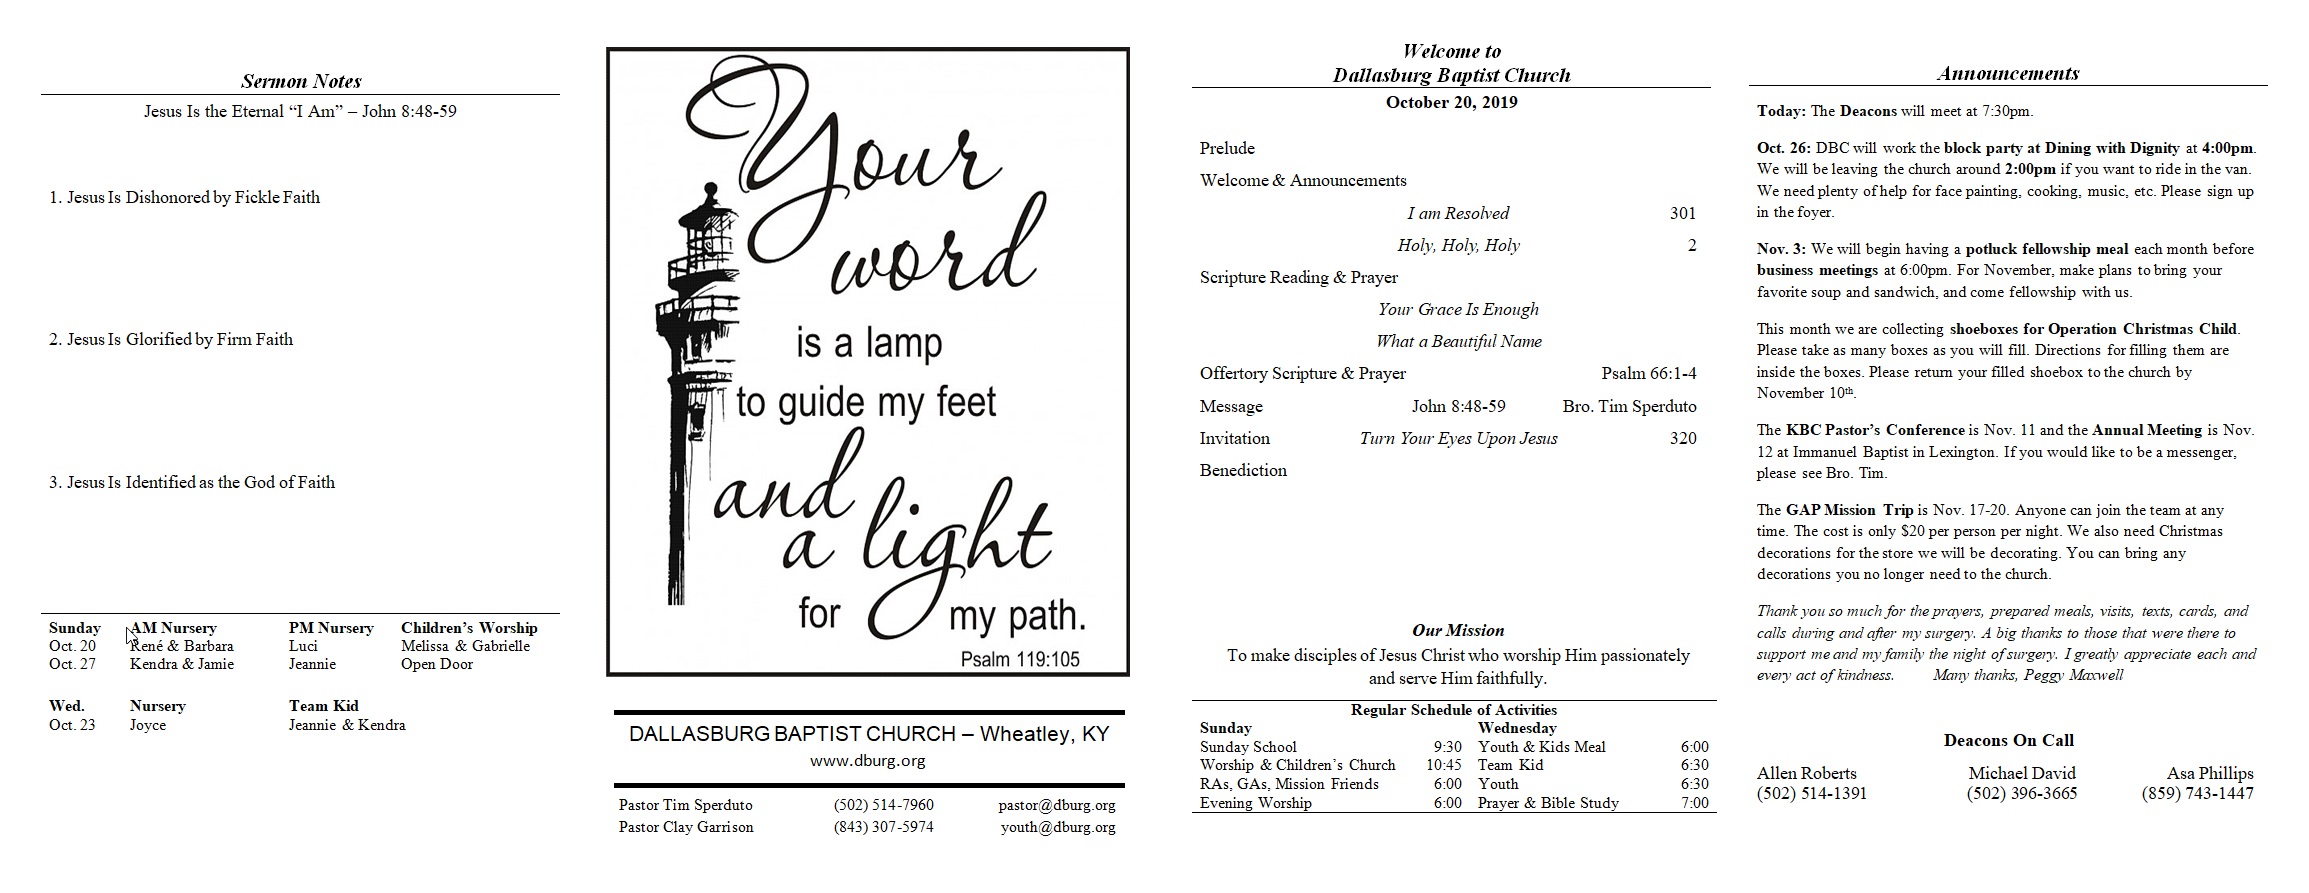 Sermon Notes
Jesus Is the Eternal “I Am” – John 8:48-59
1. Jesus Is Dishonored by Fickle Faith
2. Jesus Is Glorified by Firm Faith
3. Jesus Is Identified as the God of Faith
Sunday AM Nursery PM Nursery Children’s Worship
Oct. 20 René & Barbara Luci Melissa & Gabrielle
Oct. 27 Kendra & Jamie Jeannie Open Door
Wed. Nursery Team Kid
Oct. 23 Joyce Jeannie & Kendra
Your
word
is a lamp
to guide my feet
and
a light
for my path.
Psalm 119:105
DALLASBURG BAPTIST CHURCH – Wheatley, KY
www.dburg.org
Pastor Tim Sperduto (502) 514-7960 pastor@dburg.org
Pastor Clay Garrison (843) 307-5974 youth@dburg.org
Welcome to
Dallasburg Baptist Church
October 20, 2019
Prelude
Welcome & Announcements
I am Resolved 301
Holy, Holy, Holy 2
Scripture Reading & Prayer
Your Grace Is Enough
What a Beautiful Name
Offertory Scripture & Prayer Psalm 66:1-4
Message John 8:48-59 Bro. Tim Sperduto
Invitation Turn Your Eyes Upon Jesus 320
Benediction
Our Mission
To make disciples of Jesus Christ who worship Him passionately
and serve Him faithfully.
Regular Schedule of Activities
Sunday Wednesday
Sunday School 9:30 Youth & Kids Meal 6:00
Worship & Children’s Church 10:45 Team Kid 6:30
RAs, GAs, Mission Friends 6:00 Youth 6:30
Evening Worship 6:00 Prayer & Bible Study 7:00
Announcements
Today: The Deacons will meet at 7:30pm.
Oct. 26: DBC will work the block party at Dining with Dignity at 4:00pm.
We will be leaving the church around 2:00pm if you want to ride in the van.
We need plenty of help for face painting, cooking, music, etc. Please sign up
in the foyer.
Nov. 3: We will begin having a potluck fellowship meal each month before
business meetings at 6:00pm. For November, make plans to bring your
favorite soup and sandwich, and come fellowship with us.
This month we are collecting shoeboxes for Operation Christmas Child.
Please take as many boxes as you will fill. Directions for filling them are
inside the boxes. Please return your filled shoebox to the church by
November 10th.
The KBC Pastor’s Conference is Nov. 11 and the Annual Meeting is Nov.
12 at Immanuel Baptist in Lexington. If you would like to be a messenger,
please see Bro. Tim.
The GAP Mission Trip is Nov. 17-20. Anyone can join the team at any
time. The cost is only $20 per person per night. We also need Christmas
decorations for the store we will be decorating. You can bring any
decorations you no longer need to the church.
Thank you so much for the prayers, prepared meals, visits, texts, cards, and
calls during and after my surgery. A big thanks to those that were there to
support me and my family the night of surgery. I greatly appreciate each and
every act of kindness. Many thanks, Peggy Maxwell
Deacons On Call
Allen Roberts Michael David Asa Phillips
(502) 514-1391 (502) 396-3665 (859) 743-1447